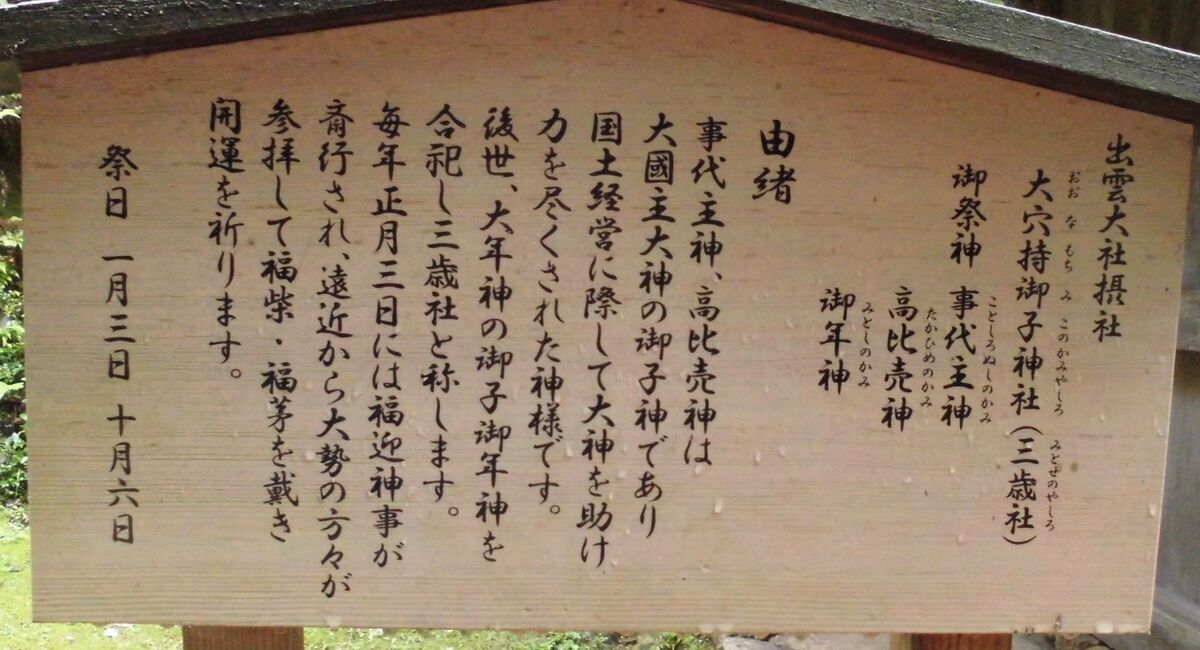 出雲大社摂社
大穴持御子神社(三歳社)
おおなもちみこのかみやしろ みとせのやしろ
御祭神 事代主神
ことしろぬしのかみ
高比売神
たかひめのかみ
御年神
みとしのかみ
由緒
事代主神、高比売神は
大國主大神の御子神であり
国土経営に際して大神を助け
力を尽くされた神様です。
後世、大年神の御子御年神を
合祀し三歳社と称します。
毎年正月三日には福迎神事が
斎行され、遠近から大勢の方々が
参拝して福柴・福茅を戴き
開運を祈ります。
祭日 一月三日 十月六日